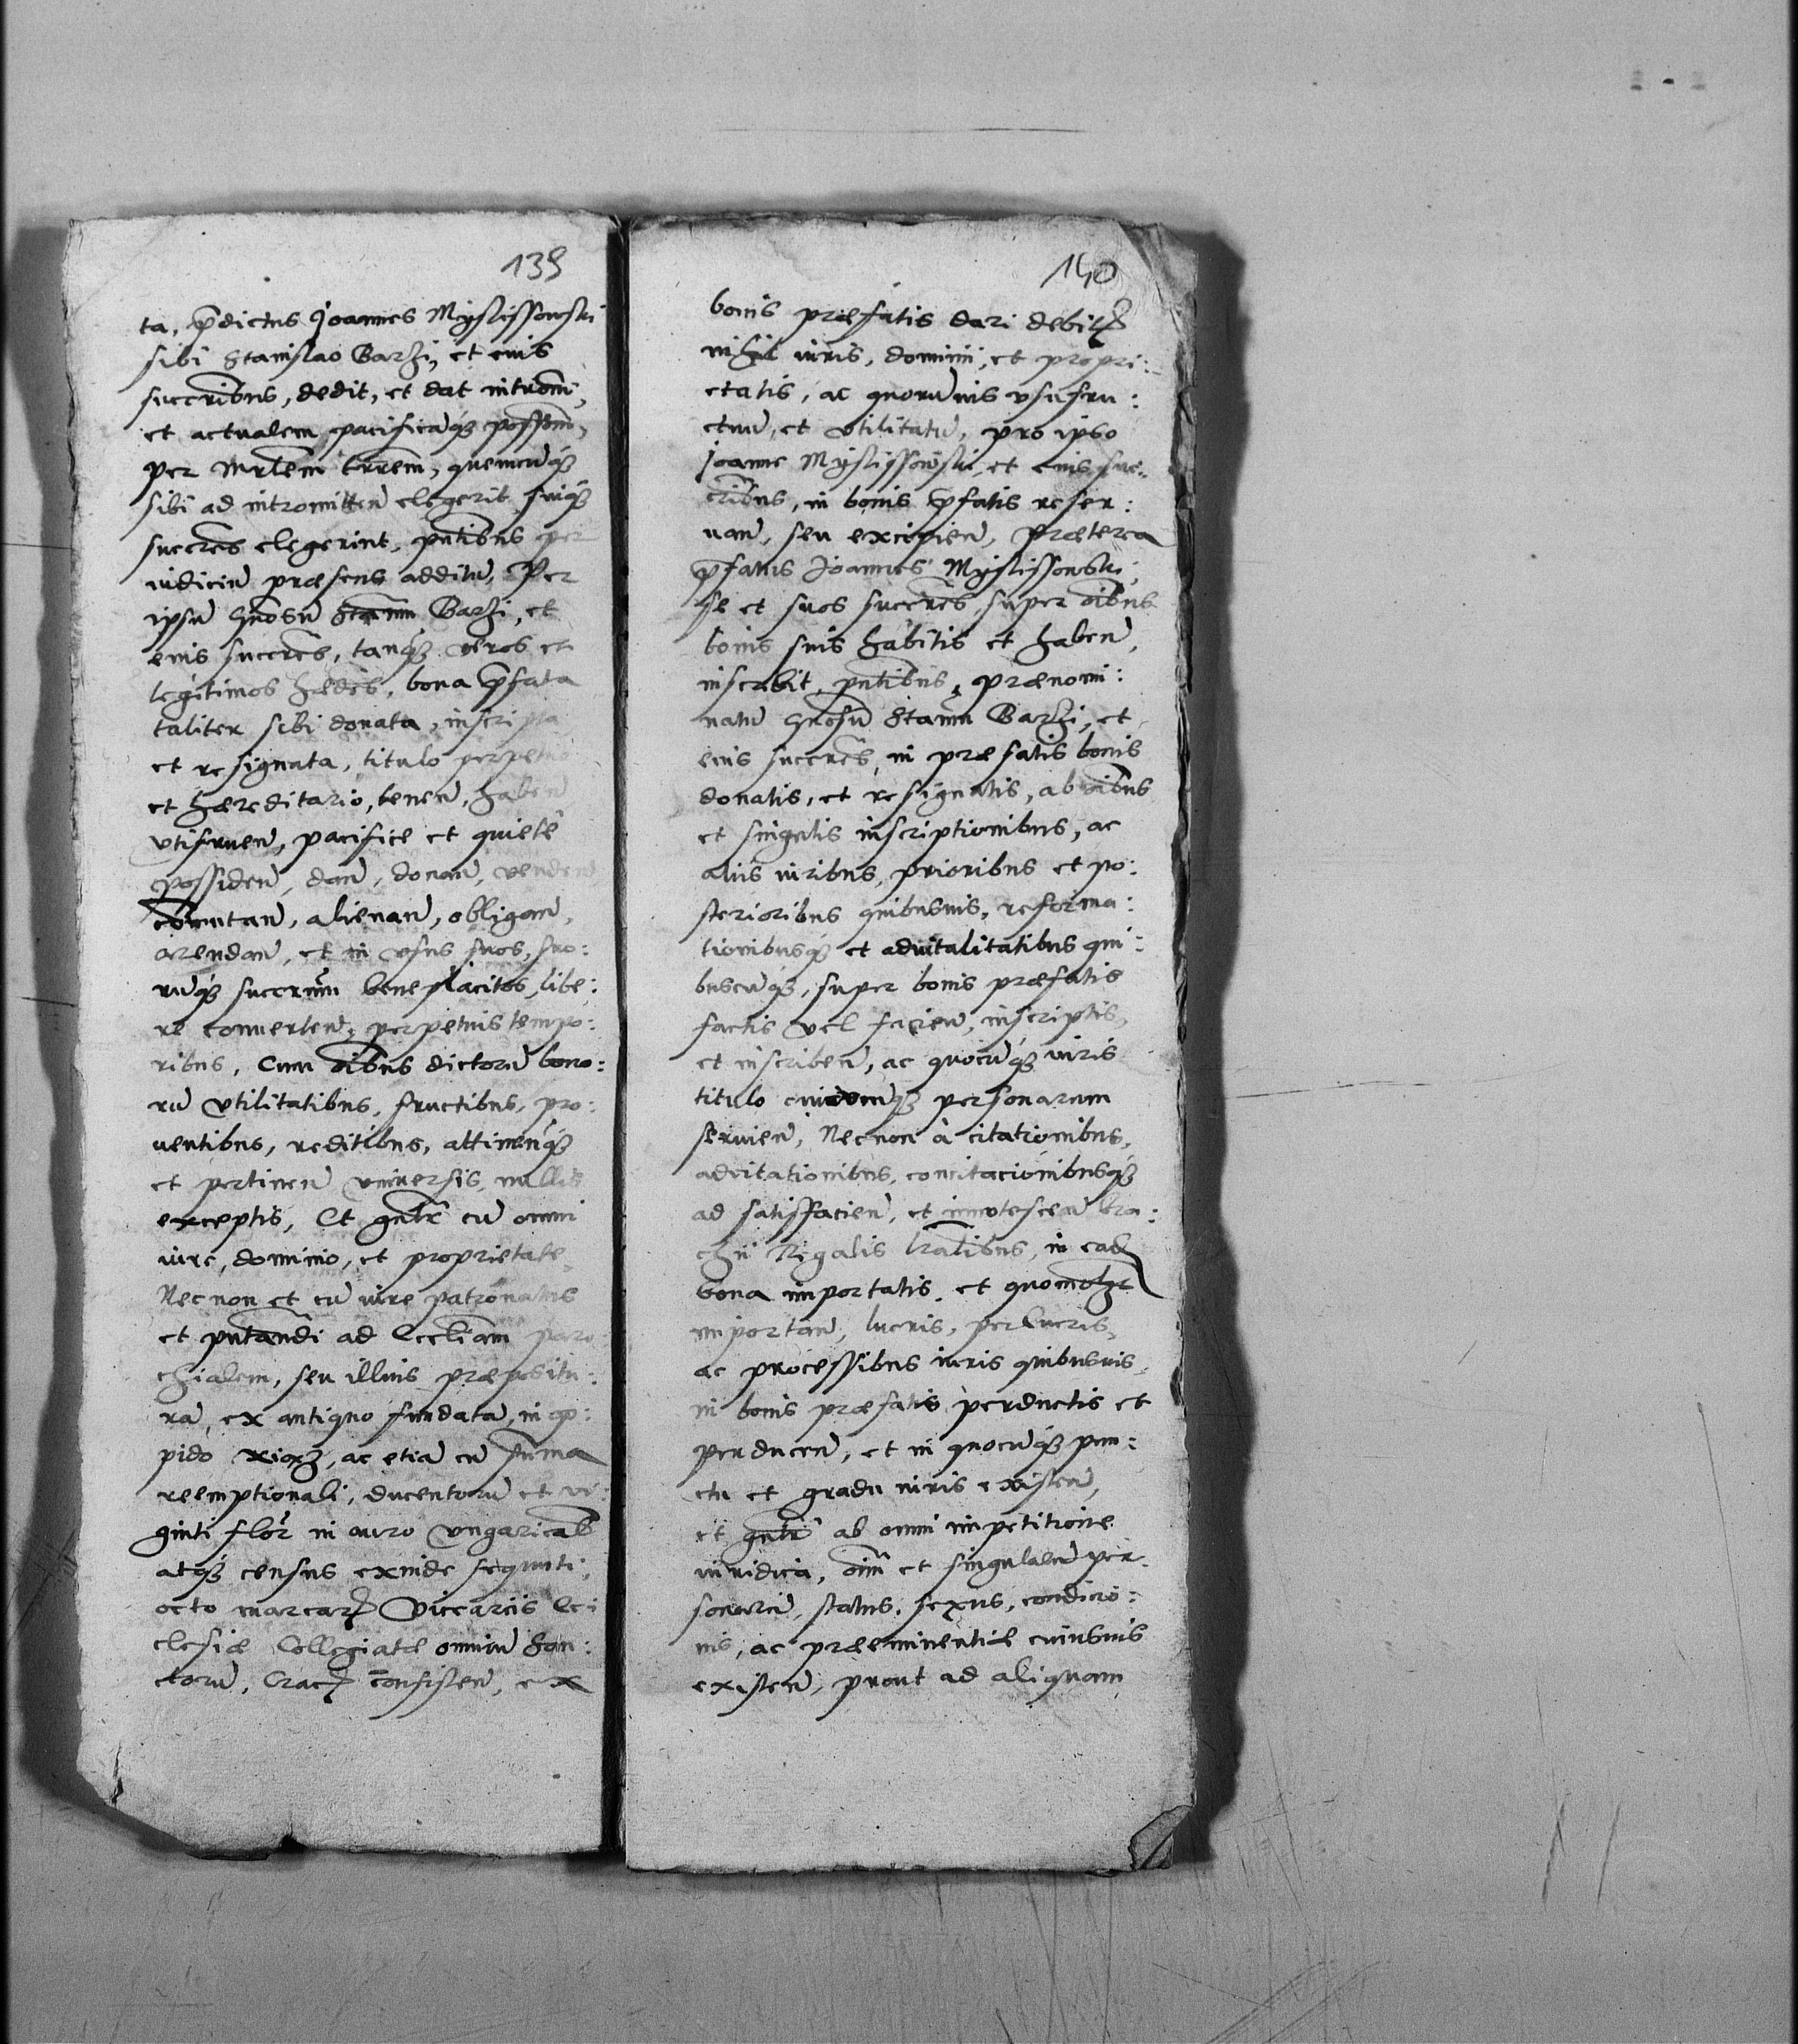 139
ta, p̄dictus Joannes Myslissowski
sibi Stanislao Barzi, et eius
succribus, dedit, et dat introm̄,
et actualem pacificaq́ꝫ possom̄,
per Mrlem̄ trrem̄, quemcūq́ꝫ
sibi ad intromitteñ elegerit, suiq́ꝫ
succres̄ elegerint, pn̄tibus per
iudiciū præsens additū. Per
ipsū Gnosū Stanm̄ Barzi, et
eius succres̄, tanq́ꝫ veros et
legitimos hædes̄, bona p̄fata
taliter sibi donata, inscripta
et resignata, titulo perpetuo
et hæreditario, teneñ, habeñ
vtifrueñ, pacifice et quiete
possideñ, dañ, donañ, vendeñ
com̄utañ, alienañ, obligañ,
arendañ, et in vsus suos, suo:
rūq́ꝫ succrum̄ beneplacitos, libe:
re conuerteñ, perpetuis tempo:
ribus, Cum oībus dictorū bono:
rū vtilitatibus, fructibus, pro:
uentibus, reditibus, attineñq́ꝫ
et pertineñ vniuersis, nullis
exceptis, Et gn̄lr cū omni
iure, dominio, et proprietate,
Nec non et cū iure patronatus
et pn̄tandi ad Eccliam̄ paro
chialem, seu illius præpositu:
rā, ex antiquo fundatā, in op:
pido Xioz̨, ac etiā cū sum̄a
reemptionali, ducentorū et vi:
ginti flor̄ in auro vngaricali
atq́ꝫ census exinde sequuti,
octo marcarꝫ Viccarijs Ec:
clesiæ Collegiatæ omniū San:
ctorū, Cracꝫ consisteñ, ex
140
bonis præfatis dari debitꝫ
nihil iuris, dominij, et propri:
etatis, ac quorūuis vsufru:
ctuū, et vtilitatū, pro ipso
Joanne Myslissowski, et eius suc:
cribus̄, in bonis p̄fatis reser:
uañ, seu excipieñ, Præterea
p̄fatus Joannes Myslissowski,
se et suos succres̄, super oībus
bonis suis habitis et habeñ,
inscribit, pn̄tibus, prænomi:
natū Gnosū Stanm̄ Barzi, et
eius succres̄, in præfatis bonis
donatis, et resignatis, ab oībus
et singulis inscriptionibus, ac
alijs iuribus, prioribus et po:
sterioribus quibusuis, reforma:
tionibusq́ꝫ et aduitalitatibus qui:
buscūq́ꝫ, super bonis præfatis
factis vel facieñ, inscriptis,
et inscribeñ, ac quocūq́ꝫ iuris
titulo personarum
seruieñ, Nec non à citationibus,
adcitationibus, concitacionibusq́ꝫ
ad satisfacieñ, et innotesceñ bra:
chij Regalis lralibus̄, in eadꝫ
bona importatis, et quomolꝫt
importañ, lucris, perlucris,
ac processibus iuris quibusuis,
in bonis præfatis perductis et
perduceñ, et in quocūq́ꝫ pun:
ctu et gradu iuris existeñ,
et gn̄lr ab omni impetitione
iuridica, oīm et singularū per:
sonarū, status, sexus, condicio:
nis, ac præeminentiæ cuiusuis
existeñ, prout ad aliquam